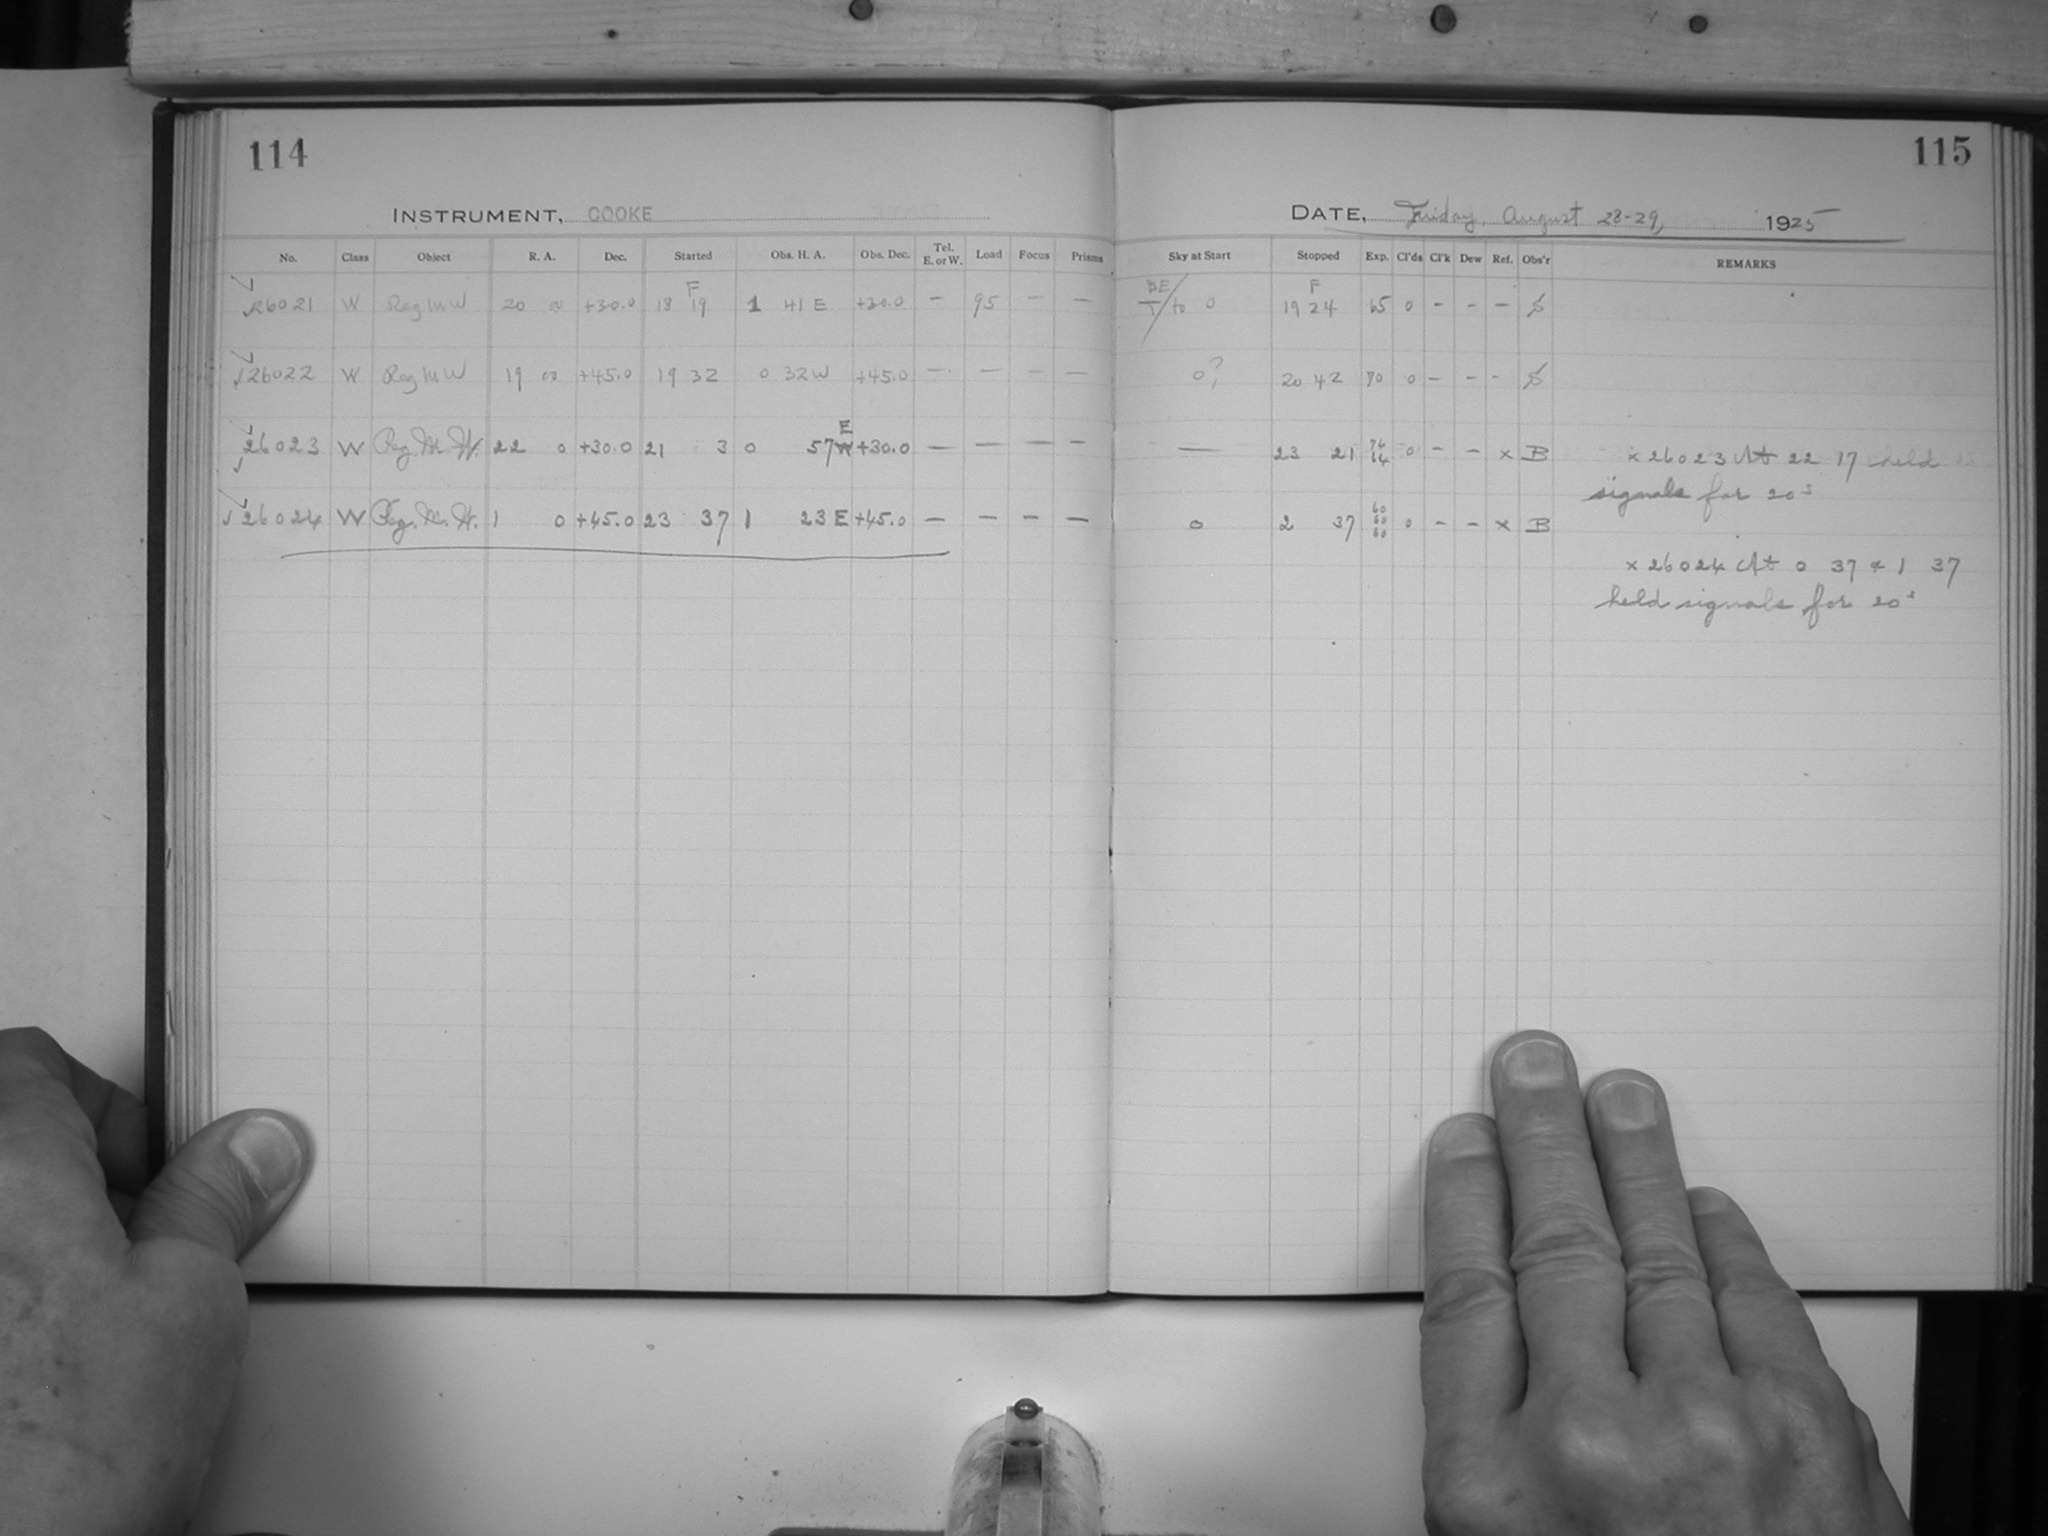 114
INSTRUMENT, COOKE
No. Class Object R. A. Dec. Started Obs. H. A. Obs. Dec. Tel. E. or W. Load Focus Prisms
26021 W Reg M W 20 00 +30.0 18 F 19 1 41 E +30.0 — 95 — —
26022 W Reg M W 19 00 +45.0 19 32 0 32 W +45.0 — — — —
26023 W Reg. M. W. 22 0 +30.0 21 3 0 57 E +30.0 — — — —
26024 W Reg. M. W. 1 0 +45.0 23 37 1 23 E +45.0 — — — —
115
DATE, Friday, August 28-29, 1925
Sky at Start Stopped Exp. Cl'ds Cl'k Dew Ref. Obs'r REMARKS
to 0 19 F 24 65 0 — — — S
0? 20 42 70 0 — — — S
— 23 21 74 64 0 — — x B x 26023 At 22 17 held
signals for 20s
0 2 37 60 60 60 0 — — x B
x 26024 At 0 37 & 1 37
held signals for 20s